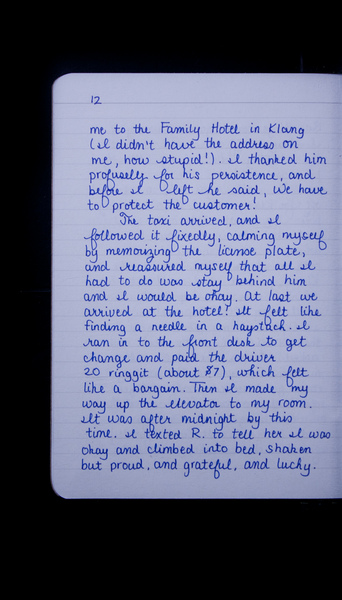 12
me to the Family Hotel in Klang
(I didn't have the address on
me, how stupid!). I thanked him
profusely for his persistence, and
before I left he said, We have
to protect the customer!
The taxi arrived, and I
followed it fixedly, calming myself
by memorizing the license plate,
and reassured myself that all I
had to do was stay behind him
and I would be okay. At last we
arrived at the hotel! It felt like
finding a needle in a haystack. I
ran in to the front desk to get
change and paid the driver
20 ringgit (about $7), which felt
like a bargain. Then I made my
way up the elevator to my room.
It was after midnight by this
time. I texted R. to tell her I was
okay and climbed into bed, shaken
but proud, and grateful, and lucky.